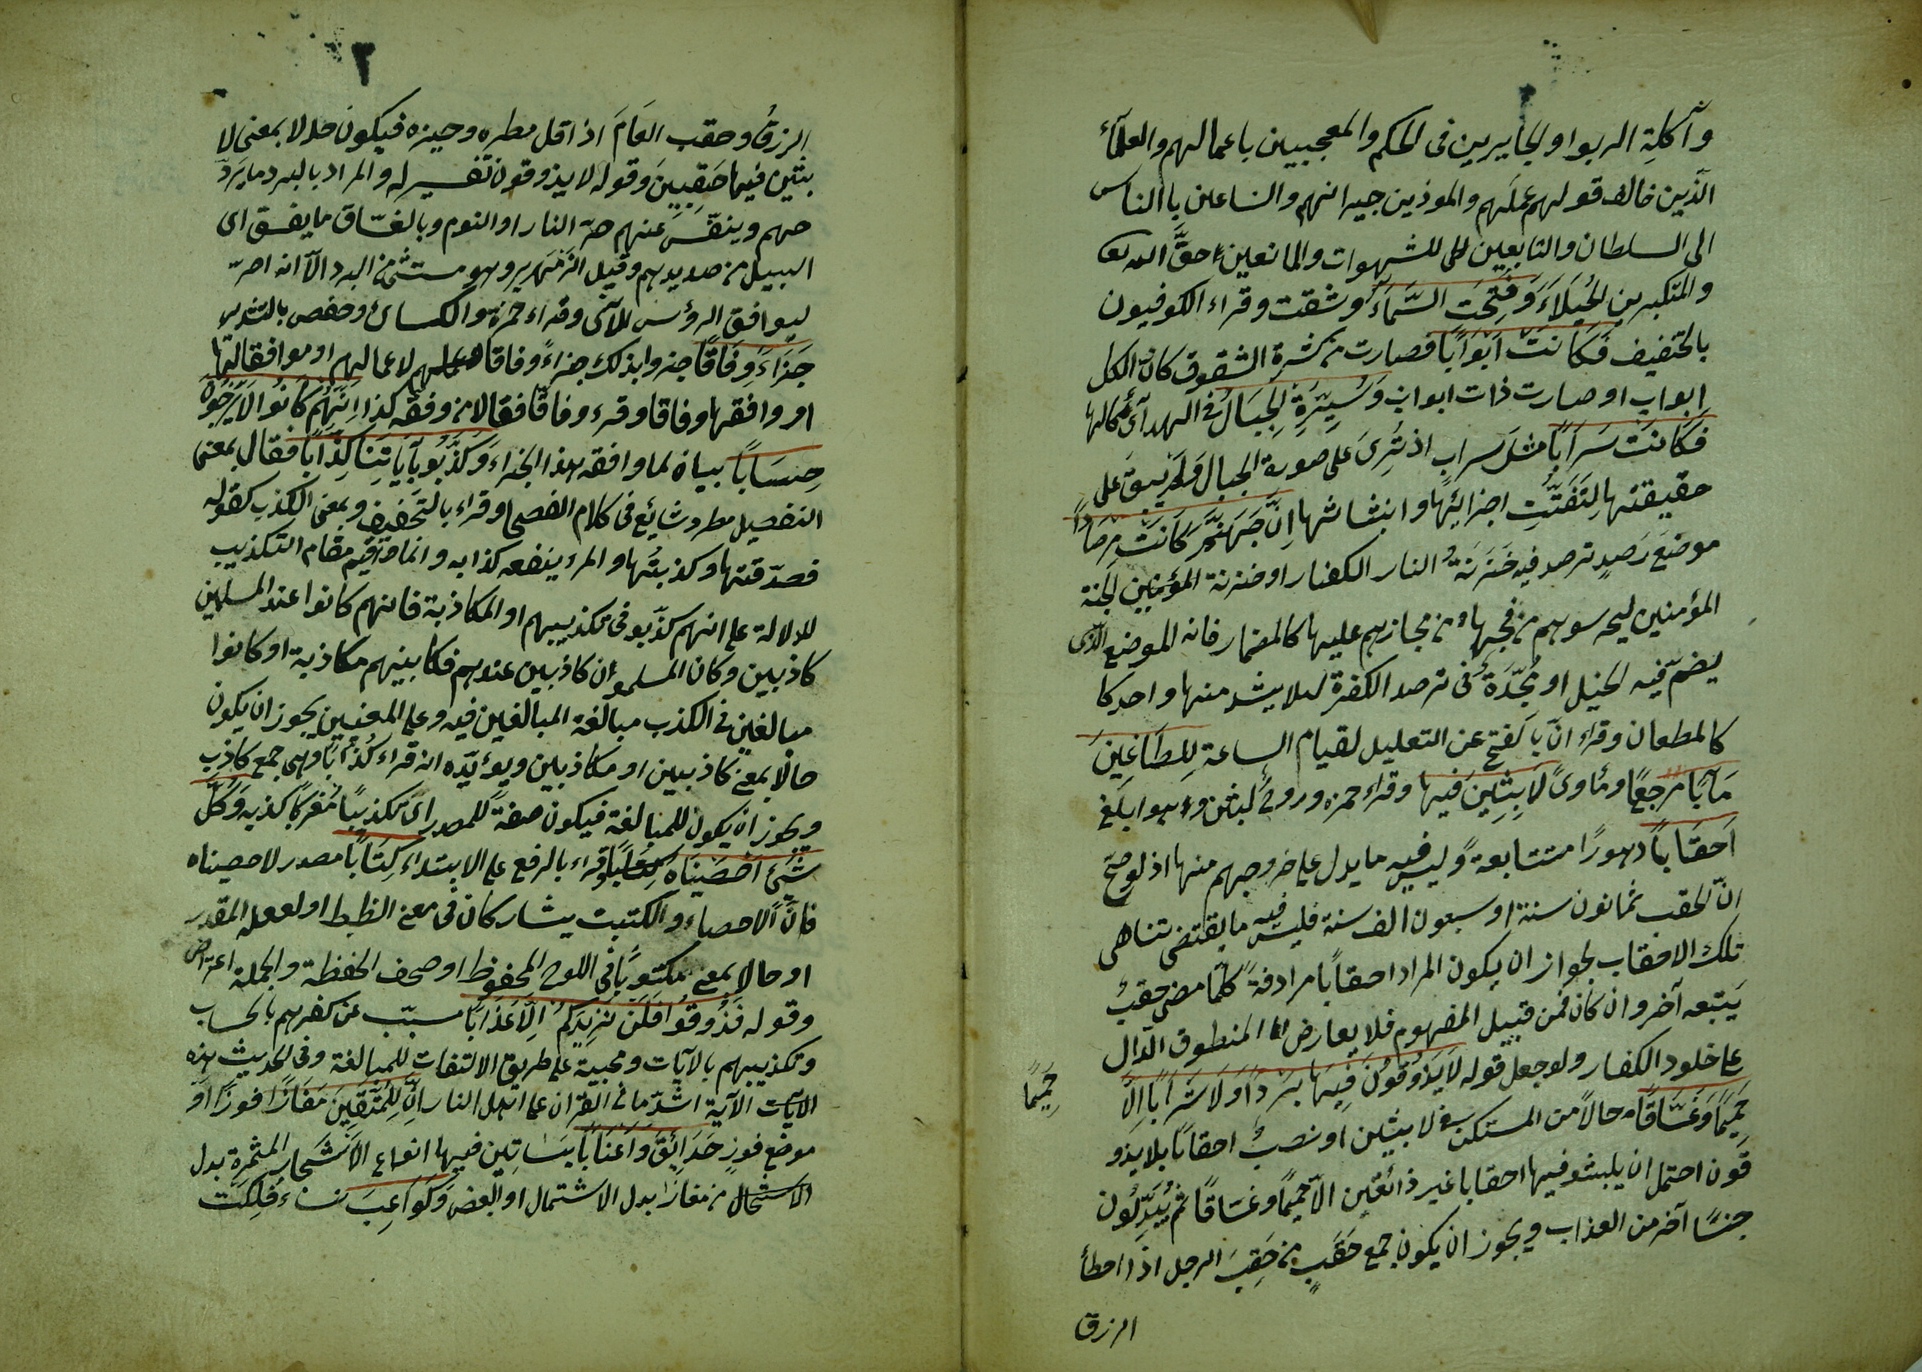 وآكلة الربوا والجايرين فى الحكم والمعجبين باعمالهم والعلمآء
الذين خالف قولهم عملهم والموذين جيرانهم والساعين بالناس
الى السلطان والتابعين للشهوات والمانعين حق الله تع
والمتكبرين الخيلاء وَفُتِحَت السَّمَآءُ وشقت وقراء الكوفيون
بالتخفيف فَكَانَتْ اَبْوَابًا فصارت من كثرة الشقوق كان الكل
ابواب او صارت ذات ابواب وَسُيِّرَةِ الجِبَالُ فى الهوآء كالهبآء
فَكَانَتْ سَرَابًا مثل سراب اذ تُرى على صورة الجبال ولم يبق على
حقيقتها لتفتت اجزائها وانبثاثها اِنَّ جَهَنَّمَ كَانَتْ مِرْصَادًا
موضع رصد ترصد فيه خزنة النار الكفار او خزنة المؤمنين الجنة
المؤمنين ليحرسوهم من فيحها فى مجازهم عليها كالمضمار فانه الموضع الذى
يضمّ فيه الخيل او مُجِدَّة فى ترصد الكفرة لئلا يشد منها واحد كا
كالمطعان وقراء انّ بالفتح عن التعليل لقيام الساعة لِلطَاغِينَ
مَآبًا مرجعًا ومأوىً لَابِثِينَ فيها وقراء حمزه وروح لبثين وهو ابلغ
اَحقَابًا دهورًا متتابعة وليس فيه ما يدل على خروجهم منها اذ لو صح
انّ الحقب ثمانون سنة او سبعون الف سنة فليس فيه ما يقتضى تناهى
تلك الاحقاب لجواز ان يكون المراد احقابًا مرادفة كلما مضى حقب
يتبعه آخر وان كان فمن قبيل المفهوم فلا يعارض المنطوق الدال
على خلود الكفار ولو جعل قوله لَا يَذُوقُونَ فِيهَا بَرْدًا وَلَا شَرَابًا اِلَّا
حميمًا
حَمِيمًا وَغَسَّاقًا حالا من المستكن فى لابثين او نصب احقابًا بلا يذو
قون احتمل ان يلبثو فيها احقابا غير ذائقين الا حميمًا وغساقًا ثم يُبَدِّلُون
جنسًا آخر من العذاب ويجوز ان يكون جمع حَقَبٍ من حَقِبَ الرجل اذا اخطأ
الرزق
٢
الرزقُ وحقب العَامَ اذا قل مطره وخيره فيكون حالا بمعنى لا
بثين فيها حَقِبِينَ وقوله لا يذوقون تفسير له والمراد بالبرد ما يَرَدّ
حهم وينفّس عنهم حرّ النار او النوم وبالغسّاق ما يغسق اى
يسيل من صديدهم وقيل الزمهرير وهو مستثنى من البرد الا انه اخرّ
ليوافق الرؤس الآى وقراء حمزة والكسائ وحفص بالتشديد
جَزَاءً وِفَاقًا جزوا بذلك جزاءً وفاقا لاعمالهم او موافقا لها
او وافقها وفاقا وقرء وِفّاقًا فعّالا من وفقه كذا اِنَّهُمْ كَانُوا لَا يَرْجُونَ
حِسَابًا بيان لما وافقه هذا الجزاء وَكَذَّبُو بِآيَاتِنَا كِذَّابًا فعّال بمعنى
التفعيل مطرد شائع فى كلام الفصحا وقراء بالتَخفيف وبمعنى الكذب كقوله
فصدّقتها وكذبتُها والمرء ينفعه كذابه وانما اقيم مقام التكذيب
للدلالة على انهم كذّبو فى تكذيبهم او المكاذبة فانهم كانوا عند المسلمين
كاذبين وكان المسلمون كاذبين عندهم فكا بينهم مكاذبة او كانوا
مبالغين فى الكذب مبالغة المبالغين فيه وعلى المعنيين يجوز ان يكون
حالًا بمعنى كاذبين او مكاذبين ويؤيّده انه قراء كُذّابًا وهى جمع كاذب
ويجوز ان يكون للمبالغة فيكون صفةً للمصدر اى تكذيبًا مُفرِطًا كذبه وَكُلَّ
شَىْءٍ اَحْصَيْنَاهُ وقراء بالرفع على الابتداء كِتَابًا مصدر لاحصيناه
فانّ الاحصاء والكتبت يتشاركان فى معنى الضبط او لفعله المقدر
او حالا بمعنى مكتوبًا فى اللوح المحفوظ او صحف الحفظة والجملة اعتراض
وقوله فَذُوقُوا فَلَنْ نَزِيدَكُمْ اِلَّا عَذَابًا مسبّب عن كفرهم بالحساب
وتكذيبهم بالآيات ومجيئه على طريق الالتفات للمبالغة وفى الحديث هذه
الآية اشدّ ما فى القران على اهل النار اِنَّ لِلْمُتَّقِينَ مَفَازًا فوزًا او
موضع فوزٍ حَدَائِقَ وَاَعْنَابًا بسَاتين فيها انواع الاشجار المثمرة بدل
من مفازًا بدل الاشتمال او البعض وَكَوَاعِبَ نساء فلكت